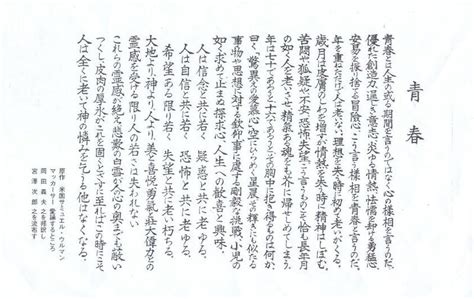 青春
青春とは人生の或る期間を言うのではなく心の様相を言うのだ。
優れた創造力、逞しき意志、炎ゆる情熱、怯懦を却ける勇猛心、
安易を振り捨てる冒険心、こう言う様相を青春と言うのだ。
年を重ねただけで人は老いない。理想を失う時に初めて老いがくる。
歳月は皮膚のしわを増すが情熱を失う時に精神はしぼむ。
苦悶や狐疑や不安、恐怖、失望、こう言うものこそ恰も長年月
の如く人を老いさせ、精気ある魂をも芥に帰せしめてしまう。
年は七十であろうと十六であろうと、その胸中に抱き得るものは何か。
曰く「驚異への愛慕心」空にひらめく星晨、その輝きにも似たる
事物や思想に対する欽仰、事に處する剛毅な挑戦、小児の
如く求めて止まぬ探求心、人生への歓喜と興味。
人は信念と共に若く 疑惑と共に老ゆる、
人は自信と共に若く 恐怖と共に老ゆる、
希望ある限り若く 失望と共に老い朽ちる。
大地より、神より、人より、美と喜悦、勇気と壮大、偉力との
霊感を受ける限り人の若さは失われない。
これらの霊感が絶え、悲歎の白雪が人の心の奥までも蔽い
つくし、皮肉の厚氷がこれを固くとざすに至ればこの時にこそ
人は全くに老いて神の憐れみを乞うる他はなくなる。
原作 米国サミュエル・ウルマン
マッカーサー 愛誦するところ
岡田義夫 之を邦訳し
宮澤次郎 之を流布す